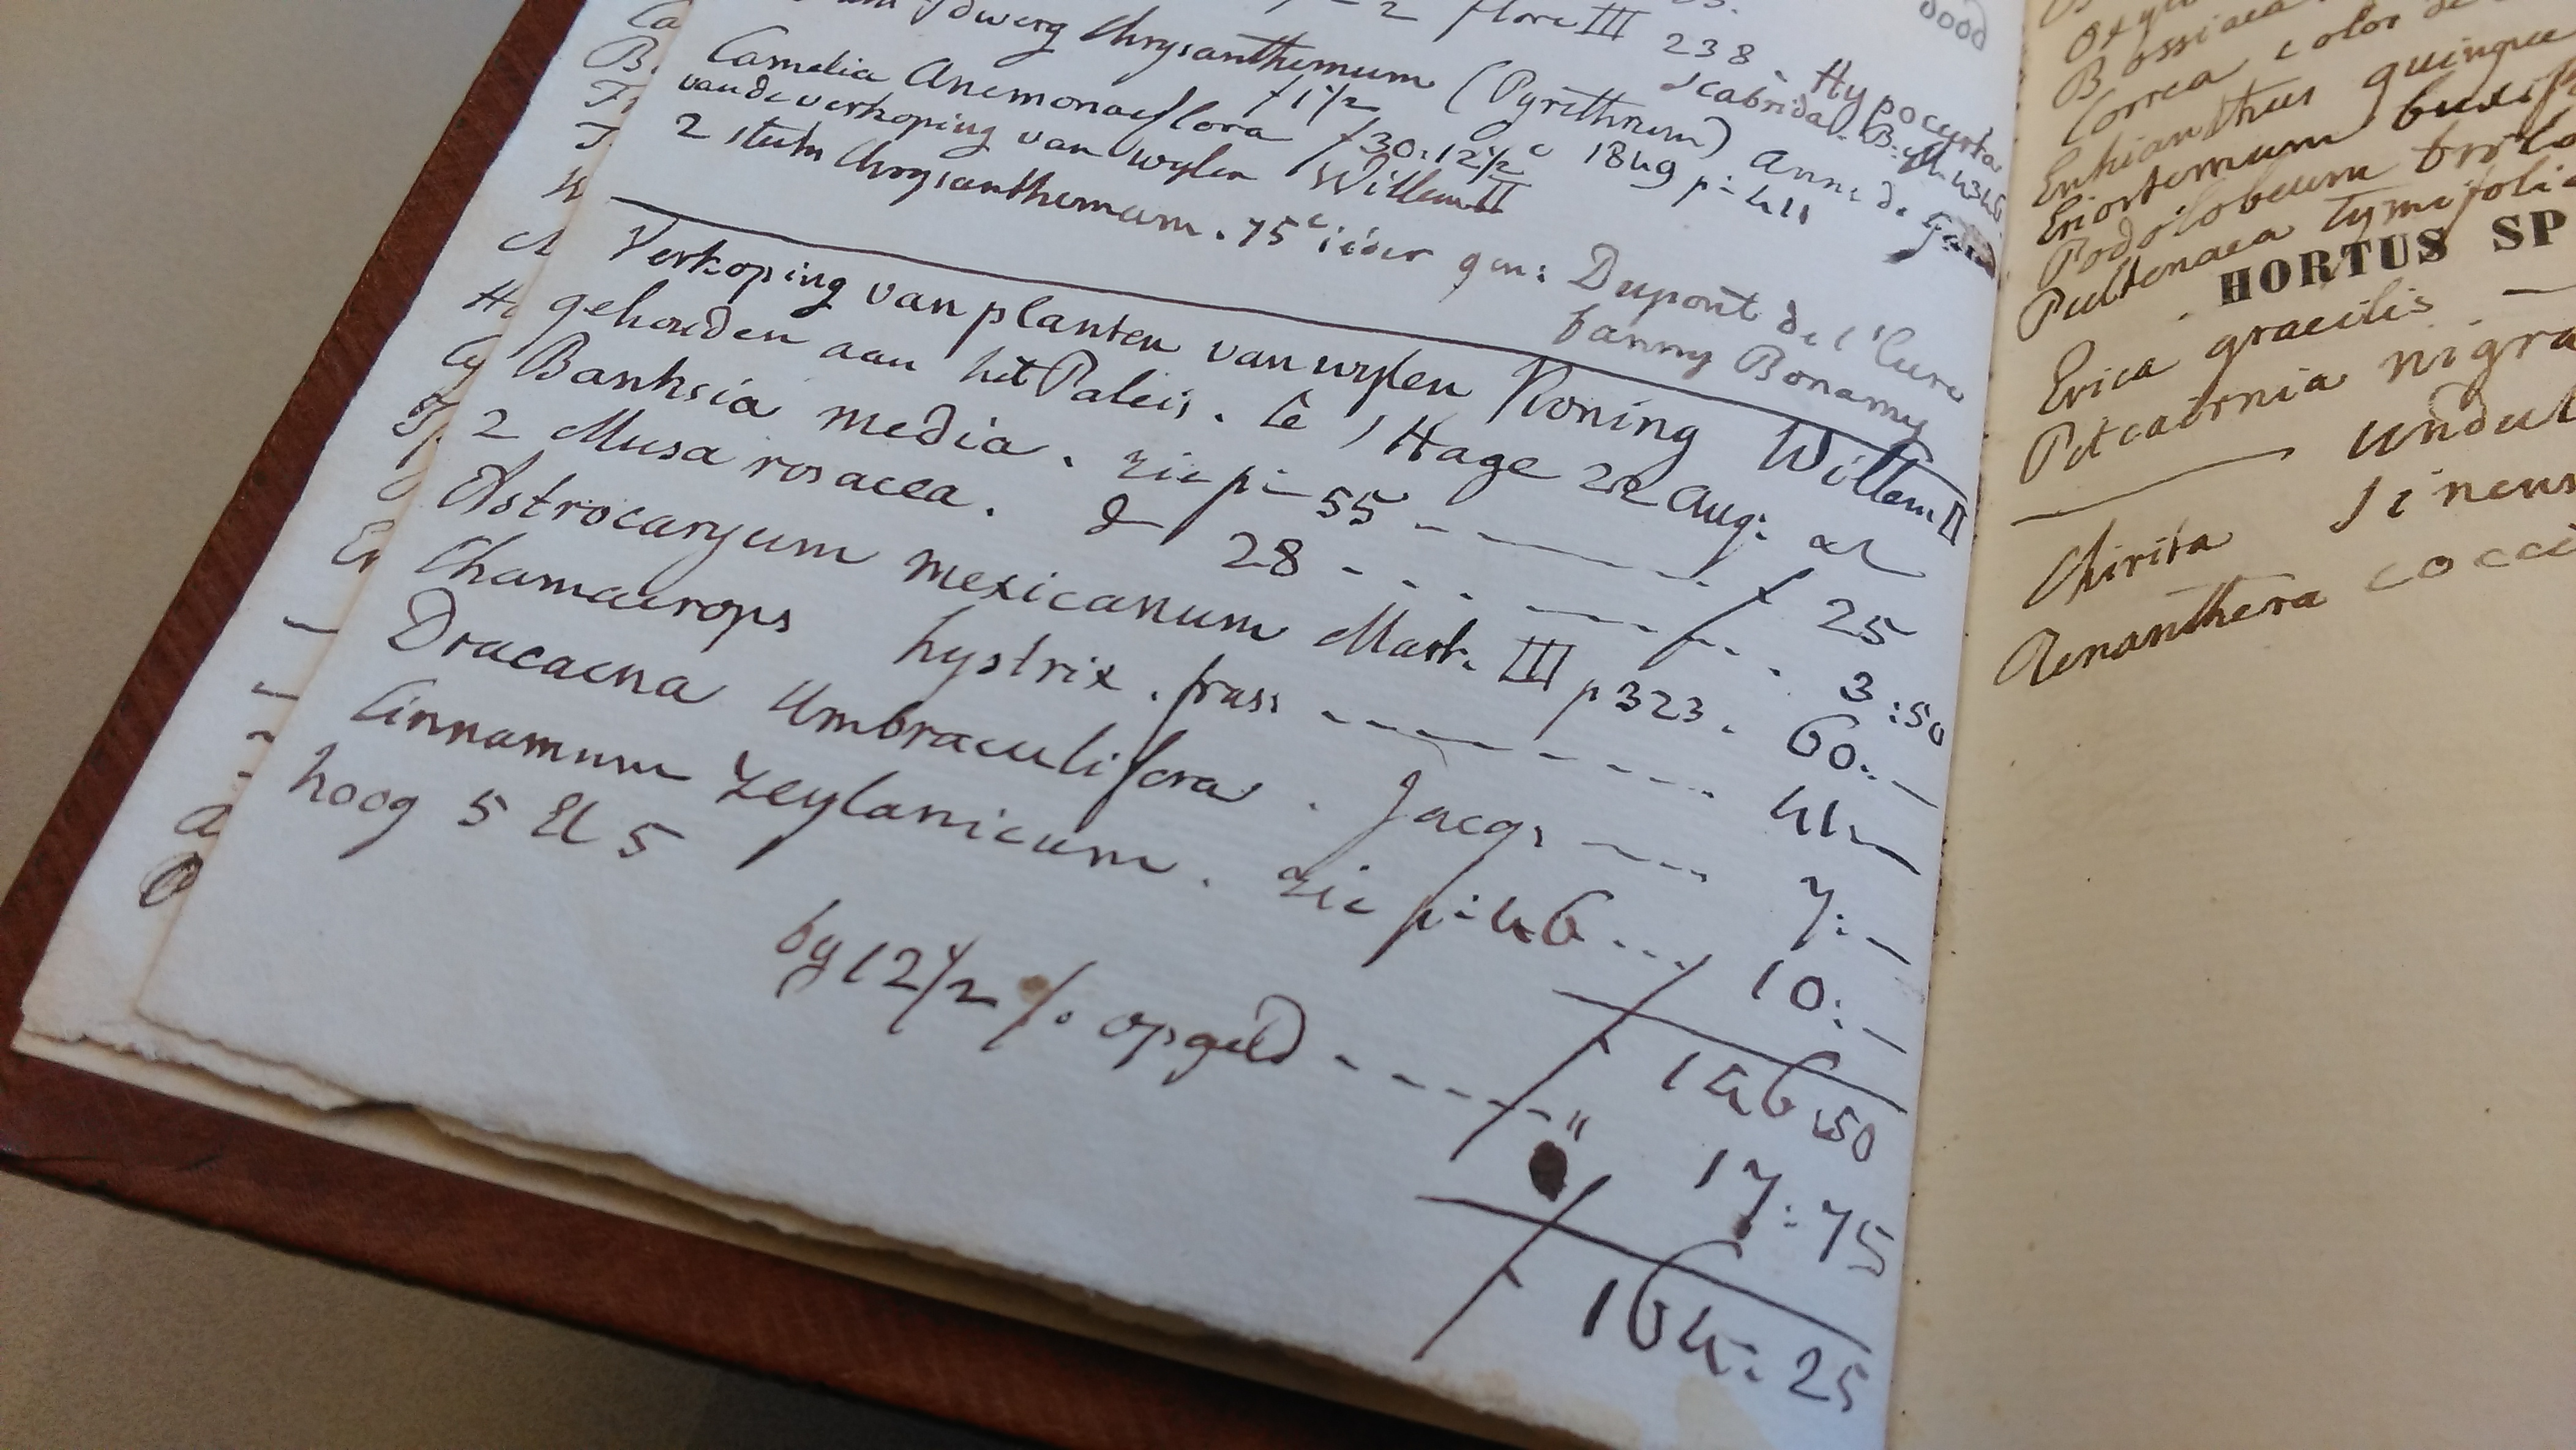 flore III 238. Hypocyrta
dwerg Chrysanthemum (Pyrethrum) Anna de
f 1½ 1849 p: 411
Camelia Anemonaeflora f 30:12½ c
van de verkoping van wylen Willem II
2 stuks Chrysanthemum. 75 c ieder gen: Dupont de l'Eure
fanny Bonamy
Verkoping van planten van wylen Koning Willem II
gehouden aan het Paleis. te 's Hage 22 Aug: al
Banksia media. zie p: 55 f 25
2 Musa rosacea. d 28 3:50
Astrocaryum mexicanum Mart. III p 323. 60:—
Chamaerops hystrix. frass 41—
Dracaena Umbraculifera. Jacq: 7:—
Cinnamum zeylanicum. zie p: 46 10:—
hoog 5 El 5
f 146:50
by 12½ % opgeld " 17:75
f 164:25
dood
Bossiaea
Correa color de
Enkianthus quinque
Eriostemum buxif
Podolobeum trilo
Pultenaea tymifolia
HORTUS SP
Erica gracilis —
Pitcairnia nigra
— undul
Chirita sinens
Renanthera cocci